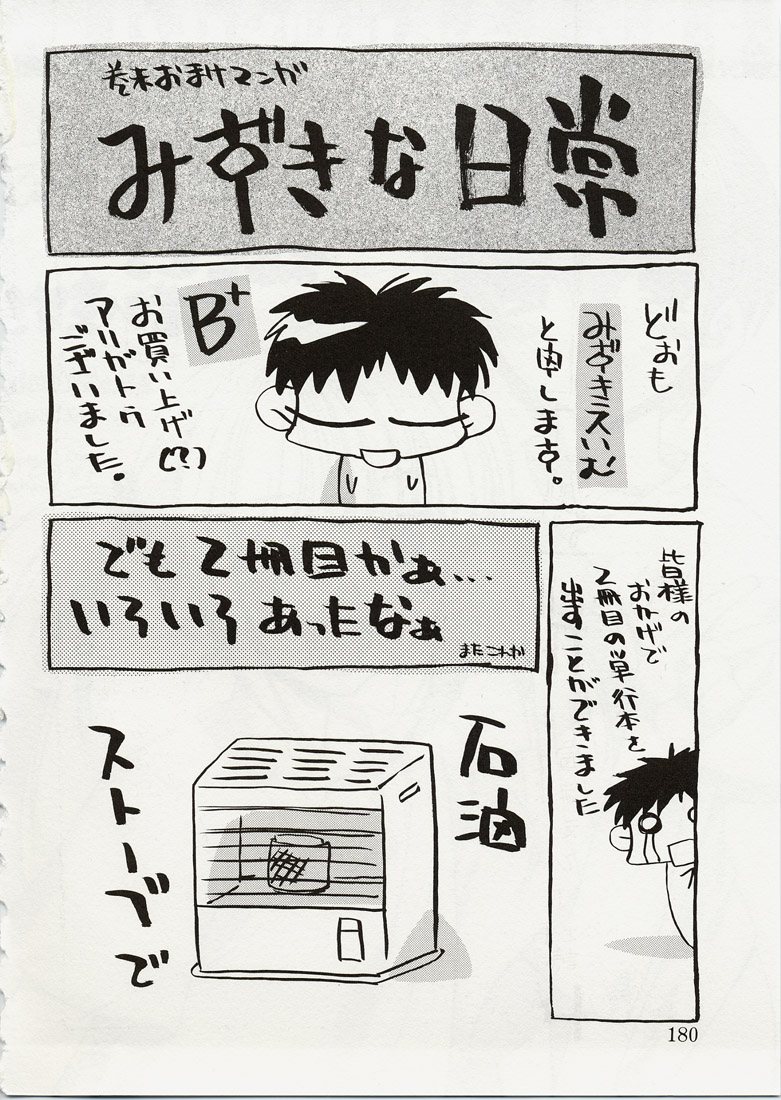 巻末おまけマンガ
みずきな日常
どおも
みずきえいむ
と申します。
B+
お買い上げ(?)
アリガトウ
ございました。
皆様の
おかげで
2冊目の単行本を
出すことができました
でも2冊目かぁ…
いろいろあったなぁ
またこれか
石油
ストーブで
180